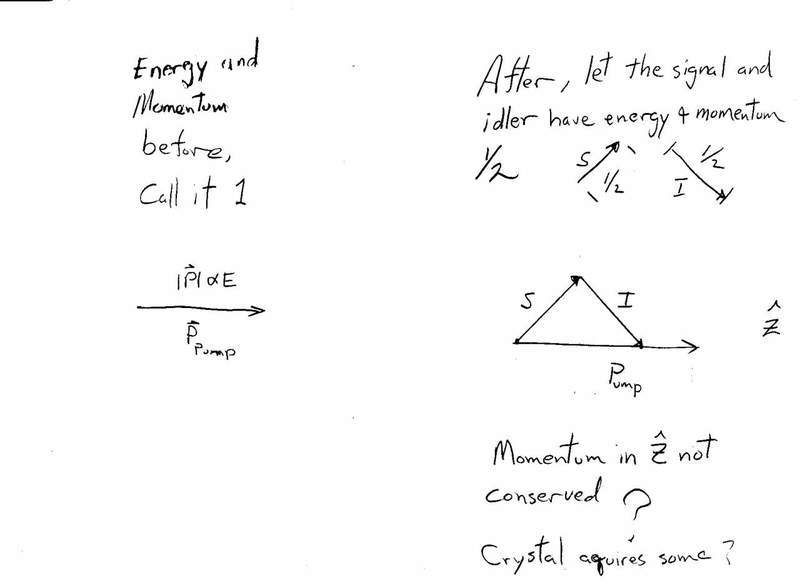 Energy and
Momentum
before,
Call it 1
|P⃗| ∝ E
P⃗ Pump
After, let the signal and
idler have energy & momentum
1/2
S 1/2
1/2 I
S I
Pump
ẑ
Momentum in ẑ not
conserved ?
Crystal aquires some ?